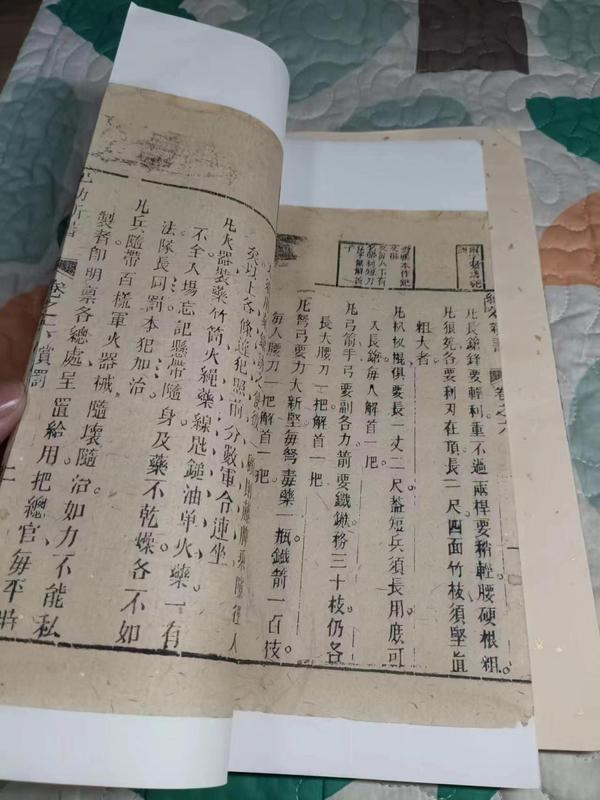 卷之六
凡長鎗鋒要輕利重不過兩桿要稍輕腰硬根粗。
凡狼筅各要利刃在頂長一尺四面竹枝須堅直
粗大者。
凡杈棍俱要長一丈二尺蓋短兵須長用庶可
入長鎗每人解首一把。
凡弓箭手弓要副各力箭要鐵鏃務三十枝仍各
長大腰刀一把解首一把
凡弩弓要力大新堅每弩毒藥一瓶鐵箭一百枝。
每人腰刀一把解首一把。
以上各條違犯照前分數軍令連坐
凡火器裝藥竹筒火繩藥線匙鎚油单火藥一有
不全入場忘記懸帶隨身及藥不乾燥各不如
法隊長同罰本犯加治。
凡兵隨帶百樣軍火器械隨壞隨治如力不能私
製者卽明禀各總處呈置給用把總官每平時
新書 卷之 賞罰 二